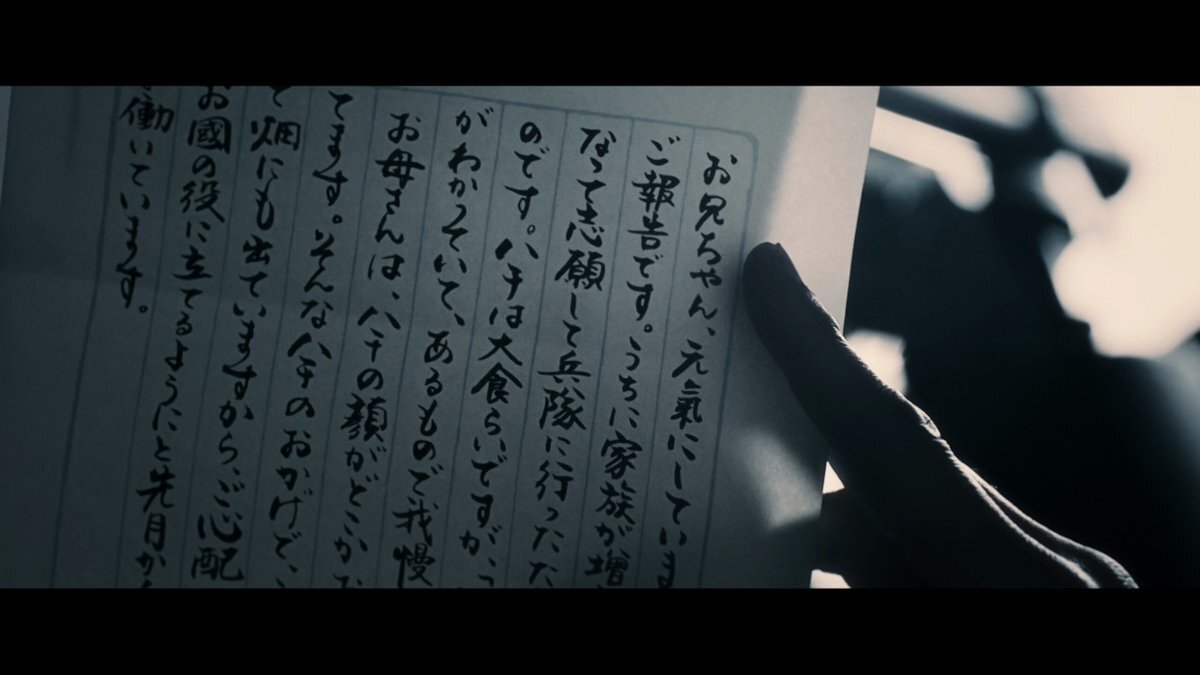 お兄ちゃん、元氣にしていま
ご報告です。うちに家族が増
なって志願して兵隊に行ったた
のです。ハチは大食らいですが、
がわかっていて、あるもので我慢
お母さんは、ハチの顔がどこか
てます。そんなハチのおかげで、
て畑にも出ていますから、ご心配
お國の役に立てるようにと先月か
働いています。